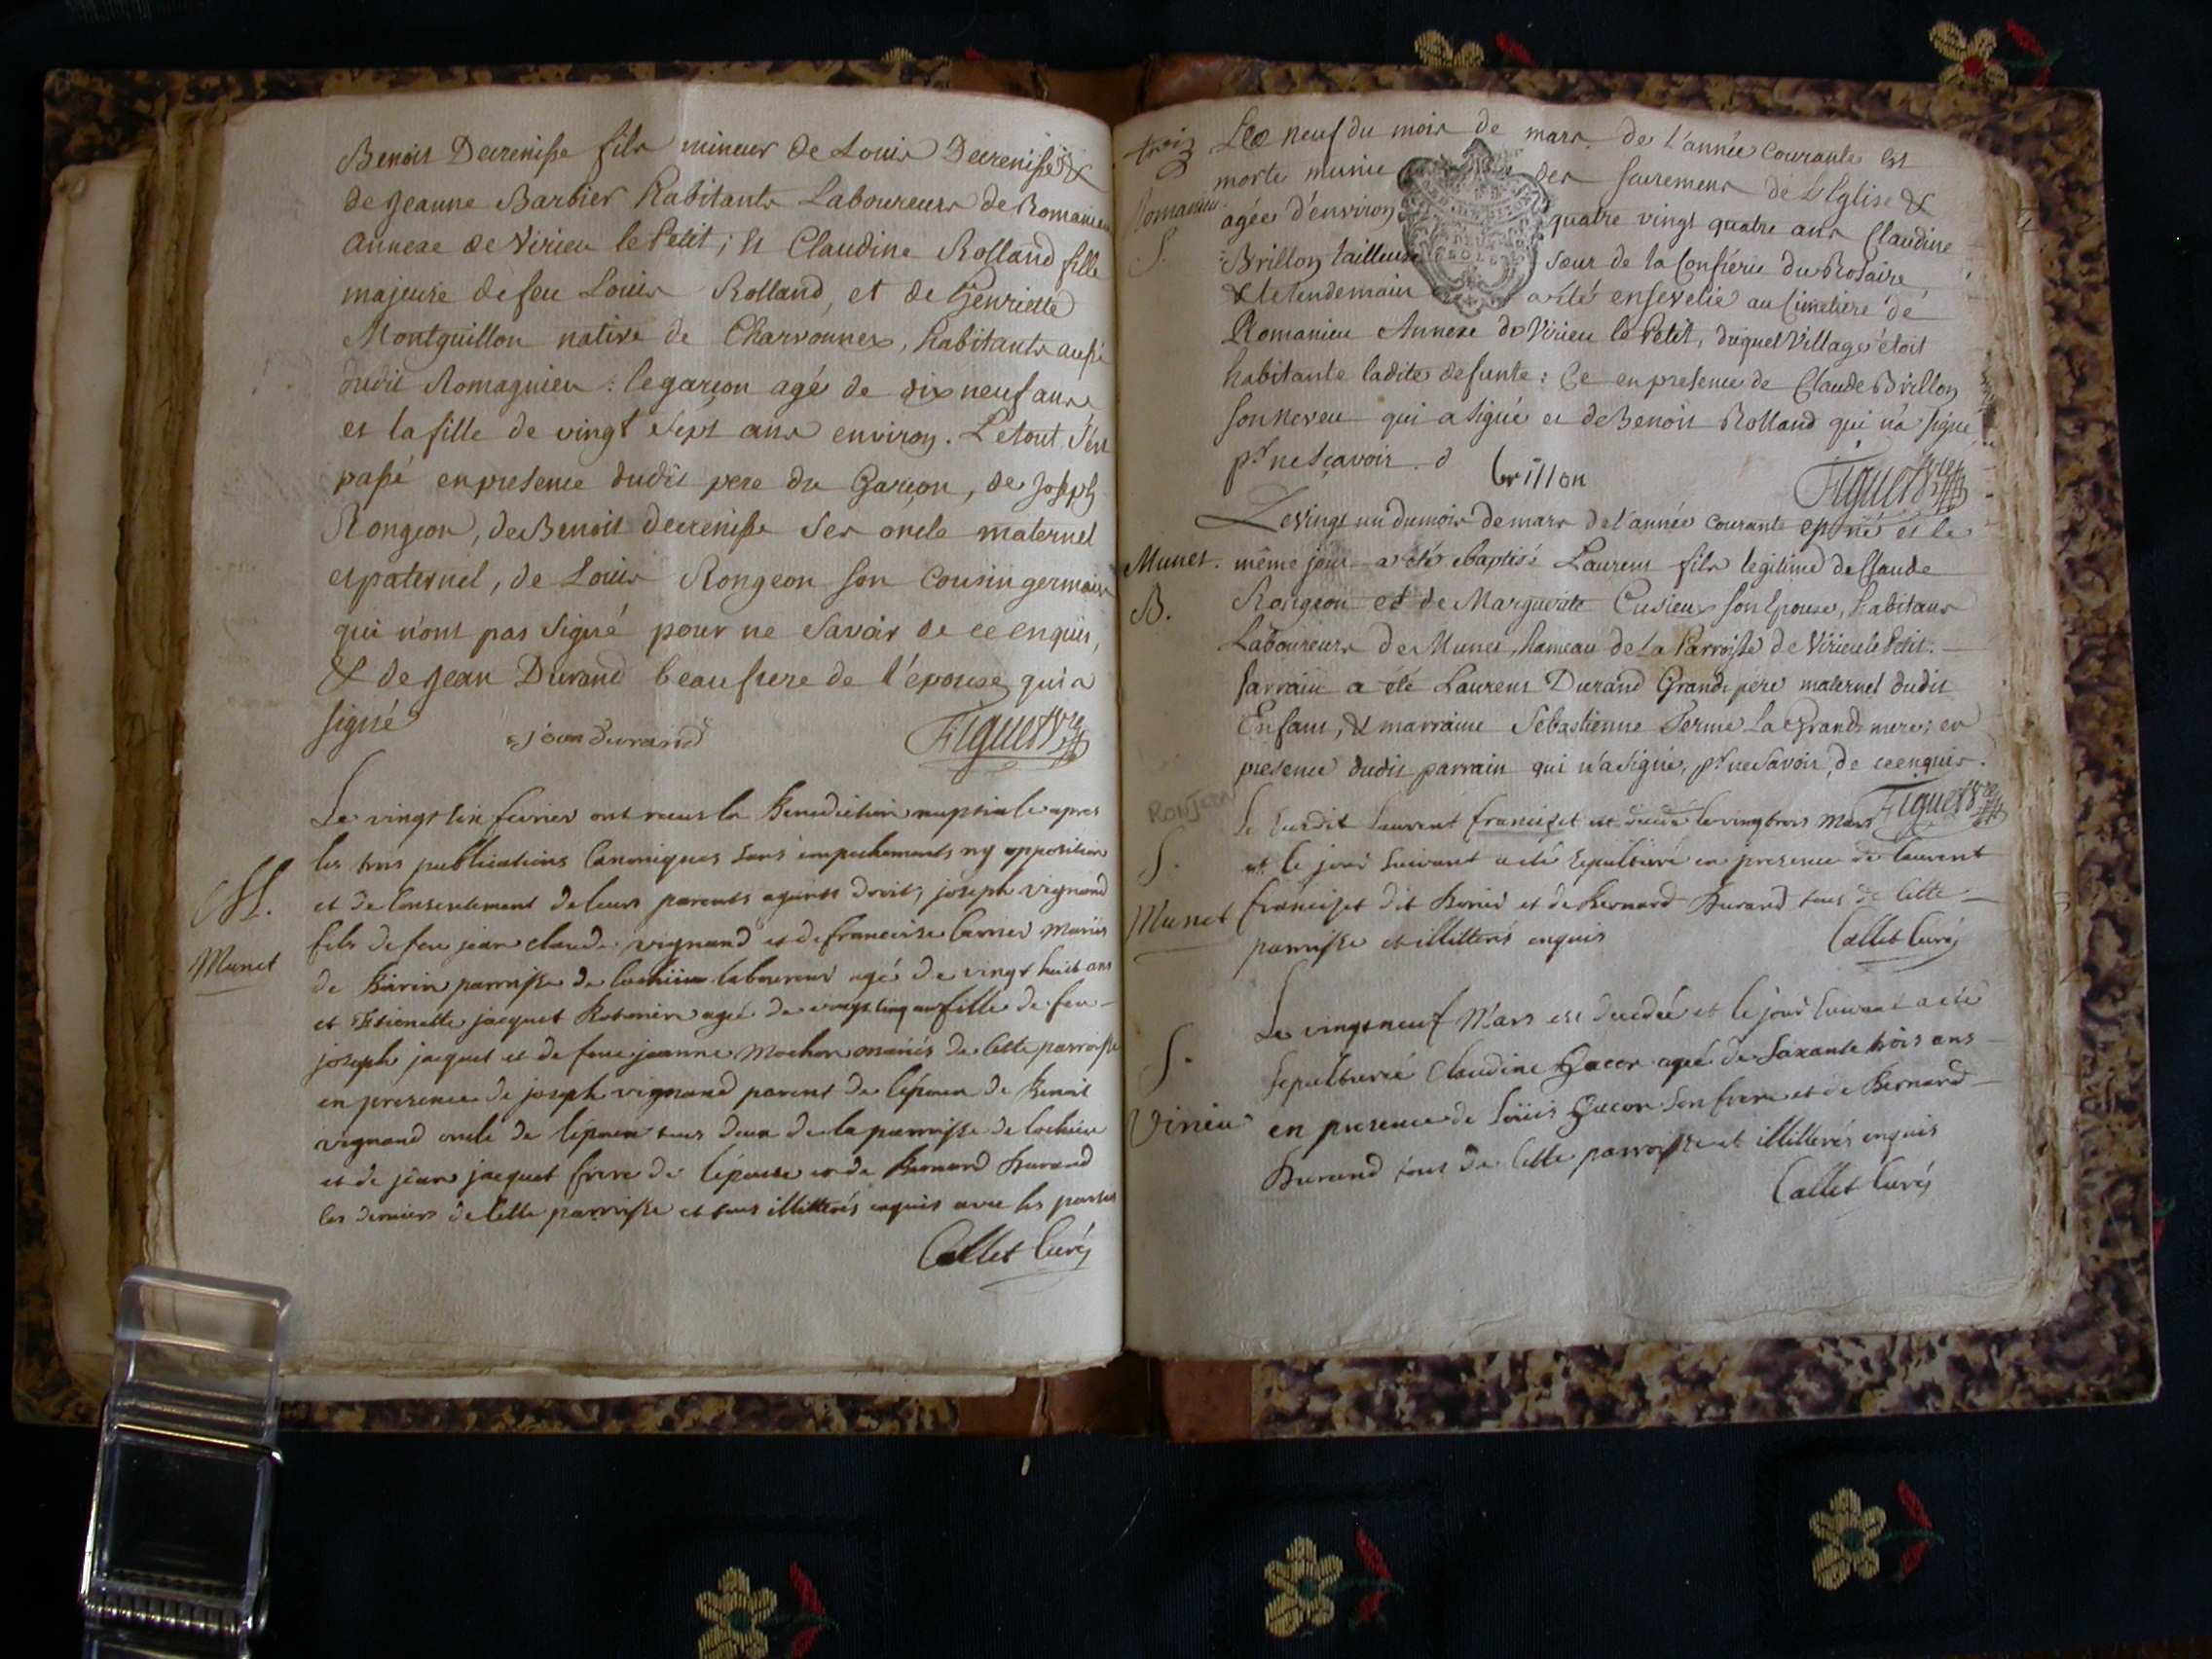 Benoit Decrenisse fils mineur de Louis Decrenisse &
de Jeanne Barbier habitants Laboureurs de Romanieu
annexe de Virieu le Petit; et Claudine Rolland fille
majeure de feu Louis Rolland, et de Henriette
Montguillon native de Charvonnex, habitants aussi
dudit Romagnieu : le garçon agé de dix neuf ans
et la fille de vingt sept ans environ. Le tout s'est
passé en presence dudit pere du Garçon, de Joseph
Rongeon, de Benoit decrenisse ses oncle maternel
et paternel, de Louis Rongeon son Cousin germain
qui n'ont pas signé pour ne savoir de ce enquis,
& de Jean Durand beaufrere de l'epouse qui a
signé
jean durand Figuet Vre
Le vingt six fevrier ont recus la Benediction nuptiale apres
les trois publications Canoniques sans empechements ny opposition
M. et de Consentement de leurs parents ayants droit, joseph vignand
fils de feu jean claude vignand et de francoise Carrier mariés
Munet de parroisse de Lochieu laboureur agé de vingt huit ans
et Etienette jacquet agée de vingt cinq ans fille de feu
joseph jacquet et de feue jeanne Mochon mariés de Cette parroisse
en presence de joseph vignand parent de l'epoux de Benoit
vignand oncle de l'epoux tous deux de la parroisse de lochieu
et de jean jacquet frere de l'epouse et de Bernard Durand
les derniers de Cette parroisse et tous illitterés enquis avec les parties
Callet Curé
trois
Le neuf du mois de mars de l'année courante est
morte munie des sacremens de l'Eglise &
Romanieu. agée d'environ quatre vingt quatre ans Claudine
S. Brillon tailleuse soeur de la Confrérie du Rosaire,
& le lendemain a été ensevelie au Cimetiere de
Romanieu Annexe de Virieu le Petit, duquel Village étoit
habitante ladite defunte : Ce en presence de Claude Brillon
son neveu qui a signé et de Benoit Rolland qui n'a signé
pr ne sçavoir.
brillon Figuet Vre
Le vingt un du mois de mars de l'année courante est né et le
Munet. même jour a été baptisé Laurent fils legitime de Claude
B. Rongeon et de Marguerite Cusieux son Epouse, habitans
Laboureurs de Munet, hameau de la Parroisse de Virieu le Petit.
Parrain a été Laurent Durand Grand pere maternel dudit
Enfant, & marraine Sebastienne Ferme la Grand mere; en
presence dudit parrain qui n'a signé, pr ne savoir, de ce enquis.
Figuet Vre
Ronjeon
Le susdit Laurent francizet est decedé le vingt trois Mars
S. et le jour suivant a eté sepulturé en presence de laurent
Munet francizet dit et de Bernard Durand tous de Cette
parroisse et illitterés enquis
Callet Curé
Le vingt neuf Mars est decedée et le jour suivant a eté
S. sepulturée Claudine Gacon agée de Soixante trois ans
Virieu en presence de Loüis Gacon son frere et de Bernard
Durand tous de Cette parroisse et illitterés enquis
Callet Curé